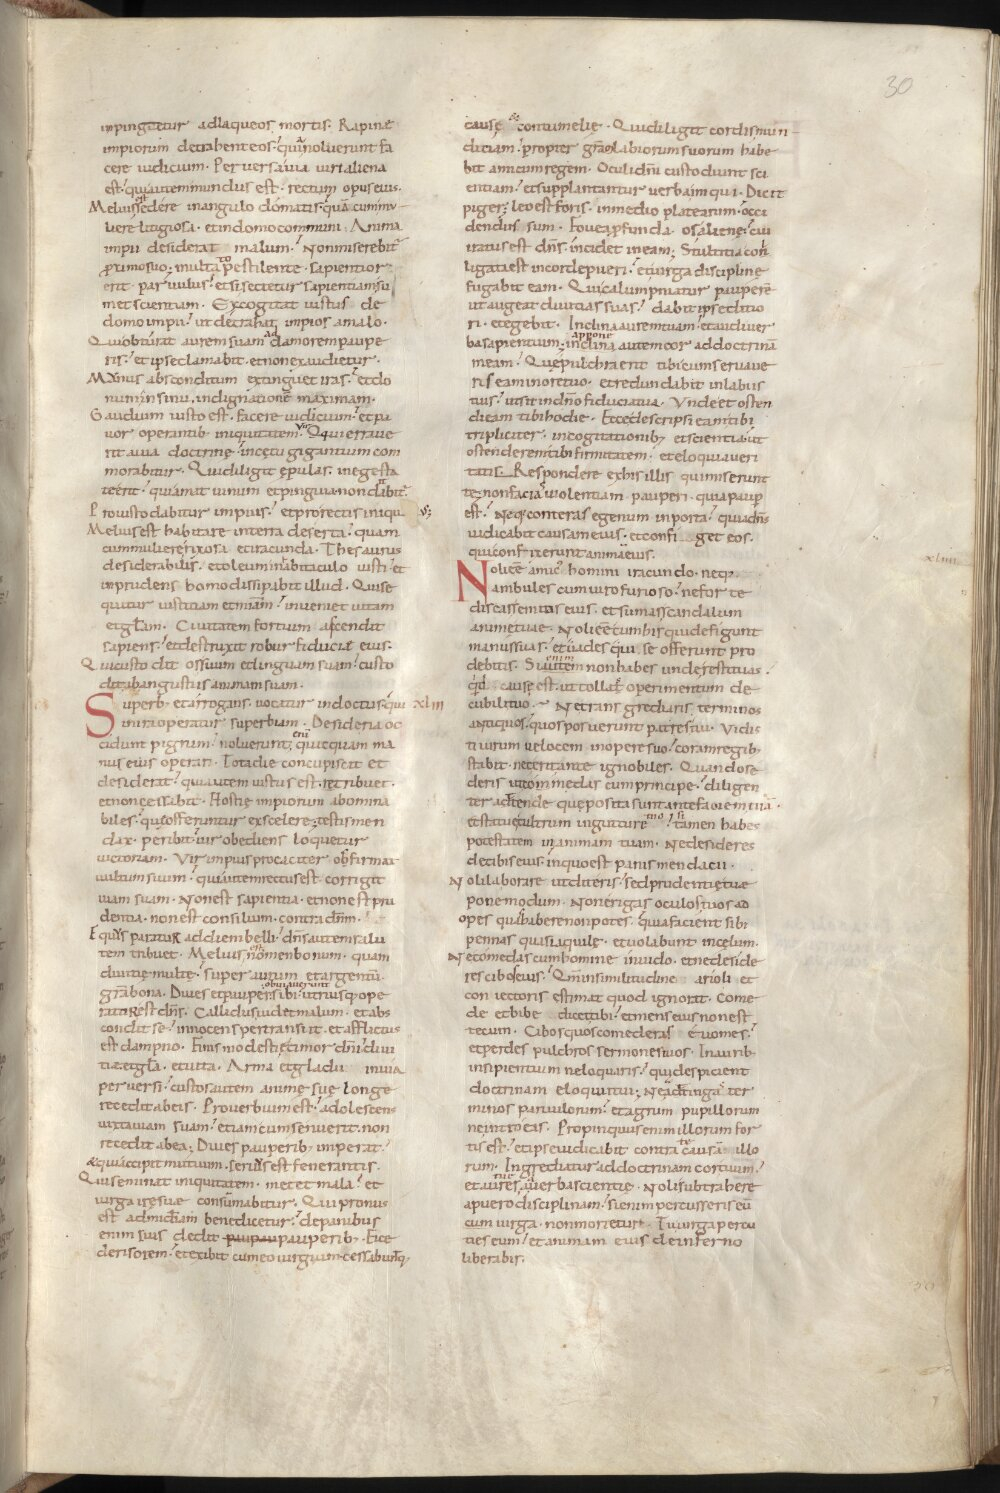 30
impingetur ad laqueos mortis. Rapinę
impiorum detrahent eos. quia noluerunt fa
cere iudicium. Perversa via viri aliena
est. qui autem mundus est. rectum opus eius.
Melius est sedere in angulo domatis. quā cum mu
liere litigiosa. et in domo communi. Anima
impii desiderat malum. Non miserebitur
proximo suo. multato pestilente. sapientior
erit parvulus. et si sectetur sapientiam su
met scientiam. Excogitat iustus de
domo impii. ut detrahat impios a malo.
Qui obturat aurem suam ad clamorem paupe
ris. et ipse clamabit. et non exaudietur.
Munus absconditum extinguet iras. et do
num in sinu. indignationē maximam.
Gaudium iusto est. facere iudicium. et pa
vor operantib; iniquitatem. Vir qui errave
rit a via doctrinę. in cętu gigantium com
morabitur. Qui diligit epulas. in egesta
te erit. qui amat vinum et pinguia non ditabit̄.
Pro iusto dabitur impius. et pro rectis iniqu us;
Melius est habitare in terra deserta. quam
cum muliere rixosa et iracunda. Thesaurus
desiderabilis. et oleum in habitaculo iusti. et
imprudens homo dissipabit illud. Qui se
quitur iustitiam et mīam. inveniet vitam
et glam. Civitatem fortium ascendit
sapiens. et destruxit robur fiducię eius.
Qui custodit os suum et linguam suam. custo
dit ab angustiis animam suam.
Superb; et arrogans. vocatur indoctus. qui xliii
in ira operatur superbiam. Desideria oc
cidunt pigrum. noluerunt enī quicquam ma
nus eius operari. Tota die concupiscit et
desiderat. qui autem iustus est. retribuet.
et non cessabit. Hostię impiorum abomina
biles. quę offeruntur ex scelere. testis men
dax. peribit. vir obediens loquetur
victoriam. Vir impius procaciter obfirmat
vultum suum. qui autem rectus est. corrigit
viam suam. Non est sapientia. et non est pru
dentia. non est consilium. contra dnm.
Equus paratur ad diem belli. dns autem salu
tem tribuet. Melius est nomen bonum. quam
divitię multę. super aurum et argentū.
gra bona. Dives et pauper obviaverunt sibi. utriusq; ope
rator est dns. Callidus videt malum. et abs
condit se. innocens pertransiit. et afflictus
est dampno. Finis modestię timor dni. divi
tię et gla. et vita. Arma et gladii in via
perversi. custos autem animę suę longe
recedit ab eis. Proverbium est. adolescens
iuxta viam suam. etiam cum senuerit. non
recedet ab ea. Dives pauperib; imperat.
& qui accipit mutuum. servus est fenerantis.
Qui seminat iniquitatem. metet mala. et
virga irę suę consumabitur. Qui pronus
est ad mīcdiam benedicetur. de panibus
enim suis dedit paupau pauperib; Eice
derisorem. et exibit cum eo iurgium. cessabuntq;
causę et contumelię. Qui diligit cordis mun
diciam. propter grām labiorum suorum habe
bit amicum regem. Oculi dni custodiunt sci
entiam. et supplantantur verba iniqui. Dicit
piger. leo est foris. in medio platearum. occi
dendus sum. Fovea pfunda. os alienę. cui
iratus est dns. incidet in eam. Stultitia con
ligata est in corde pueri. et virga disciplinę
fugabit eam. Qui calumpniatur pauperē
ut augeat divitias suas. dabit ipse ditio
ri. et egebit. Inclina aurem tuam. et audi ver
ba sapientium. appone inclina autem cor ad doctrinā
meam. Quę pulchra erit tibi cum servave
ris eam in ore tuo. et redundabit in labiis
tuis. ut sit in dno fiducia tua. Unde et osten
di eam tibi hodie. Ecce descripsi eam tibi
tripliciter. in cogitationib; et scientia. ut
ostenderem tibi firmitatem. et eloquia veri
tatis. Respondere ex his illis qui miserunt
te. non facias violentiam pauperi. quia paup
est. Neq; conteras egenum in porta. quia dns
iudicabit causam eius. et confi get eos.
qui confixerunt animā eius.
Noli eē amic; homini iracundo. neq; xliiii
ambules cum viro furioso. ne for te
discas semitas eius. et sumas scandalum
animę tuę. Noli eē cum his qui defigunt
manus suas. et vades qui se offerunt pro
debitis. Si enim autem non habes unde restituas.
quid causę est. ut tollat operimentum de
cubili tuo. Ne transgrediaris terminos
antiquos. quos posuerunt patres tui. Vidis
ti virum velocem in opere suo. coram regib;
stabit. nec erit ante ignobiles. Quando se
deris ut comedas cum principe. diligen
ter adtende que posita sunt ante faciem tuā.
et statue cultrum in gutture tuo. si tamen habes
potestatem in animam tuam. Ne desideres
de cibis eius. in quo est panis mendacii.
Noli laborare ut diteris. sed prudentię tuę
pone modum. Non erigas oculos tuos ad
opes quas habere non potes. quia facient sibi
pennas quasi aquilę. et volabunt in celum.
Ne comedas cum homine invido. et ne deside
res cibos eius. Qm̄ in similitudine arioli et
coniectoris estimat quod ignorat. Come
de et bibe dicet tibi. et mens eius non est
tecum. Cibos quos comederas evomes.
et perdes pulchros sermones tuos. In aurib;
insipientium ne loquaris. qui despicient
doctrinam eloquii tui. Ne adtingas ter
minos parvulorum. et agrum pupillorum
ne introeas. Propinquus enim illorum for
tis est. et ipse iudicabit contra te causā illo
rum. Ingrediatur ad doctrinam cor tuum.
et aures tuę ad verba scientię. Noli subtrahere
a puero disciplinam. si enim percusseris eū
cum virga. non morietur. Tu virga percu
ties eum. et animam eius de inferno
liberabis.